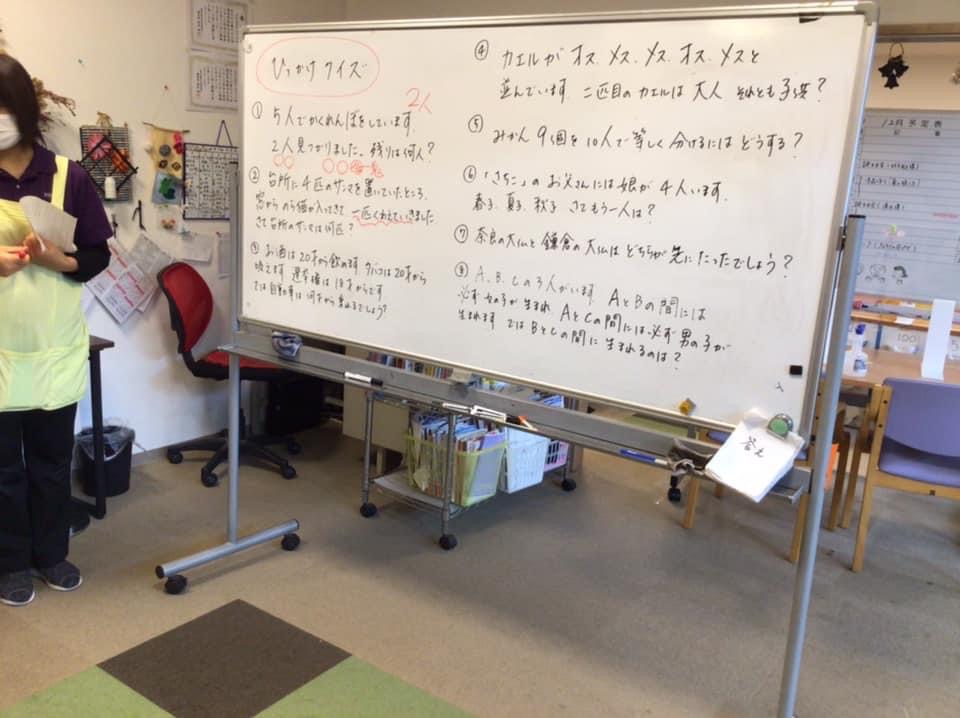 ひっかけクイズ
① 5人でかくれんぼをしています。
2人
2人見つかりました。残りは何人?
② 台所に4匹のサンマを置いていたところ、
窓からのら猫が入ってきて 二匹くわえていきました
さて台所のサンマは何匹?
③ お酒は20才から飲めます タバコは20才から
吸えます 選挙権は18才からです
では自動車は何才から乗れるでしょう?
④ カエルが オス、メス、メス、オス、メスと
並んでいます。二匹目のカエルは大人 それとも子供?
⑤ みかん9個を10人で等しく分けるにはどうする?
⑥ 「さちこ」のお父さんには娘が4人います。
春子、夏子、秋子 さてもう一人は?
⑦ 奈良の大仏と鎌倉の大仏はどちらが先にたったでしょう?
⑧ A、B、Cの3人がいます。AとBの間には
必ず女の子が生まれ、AとCの間には必ず男の子が
生まれます では BとCの間に生まれるのは?
答え
12月予定表
100